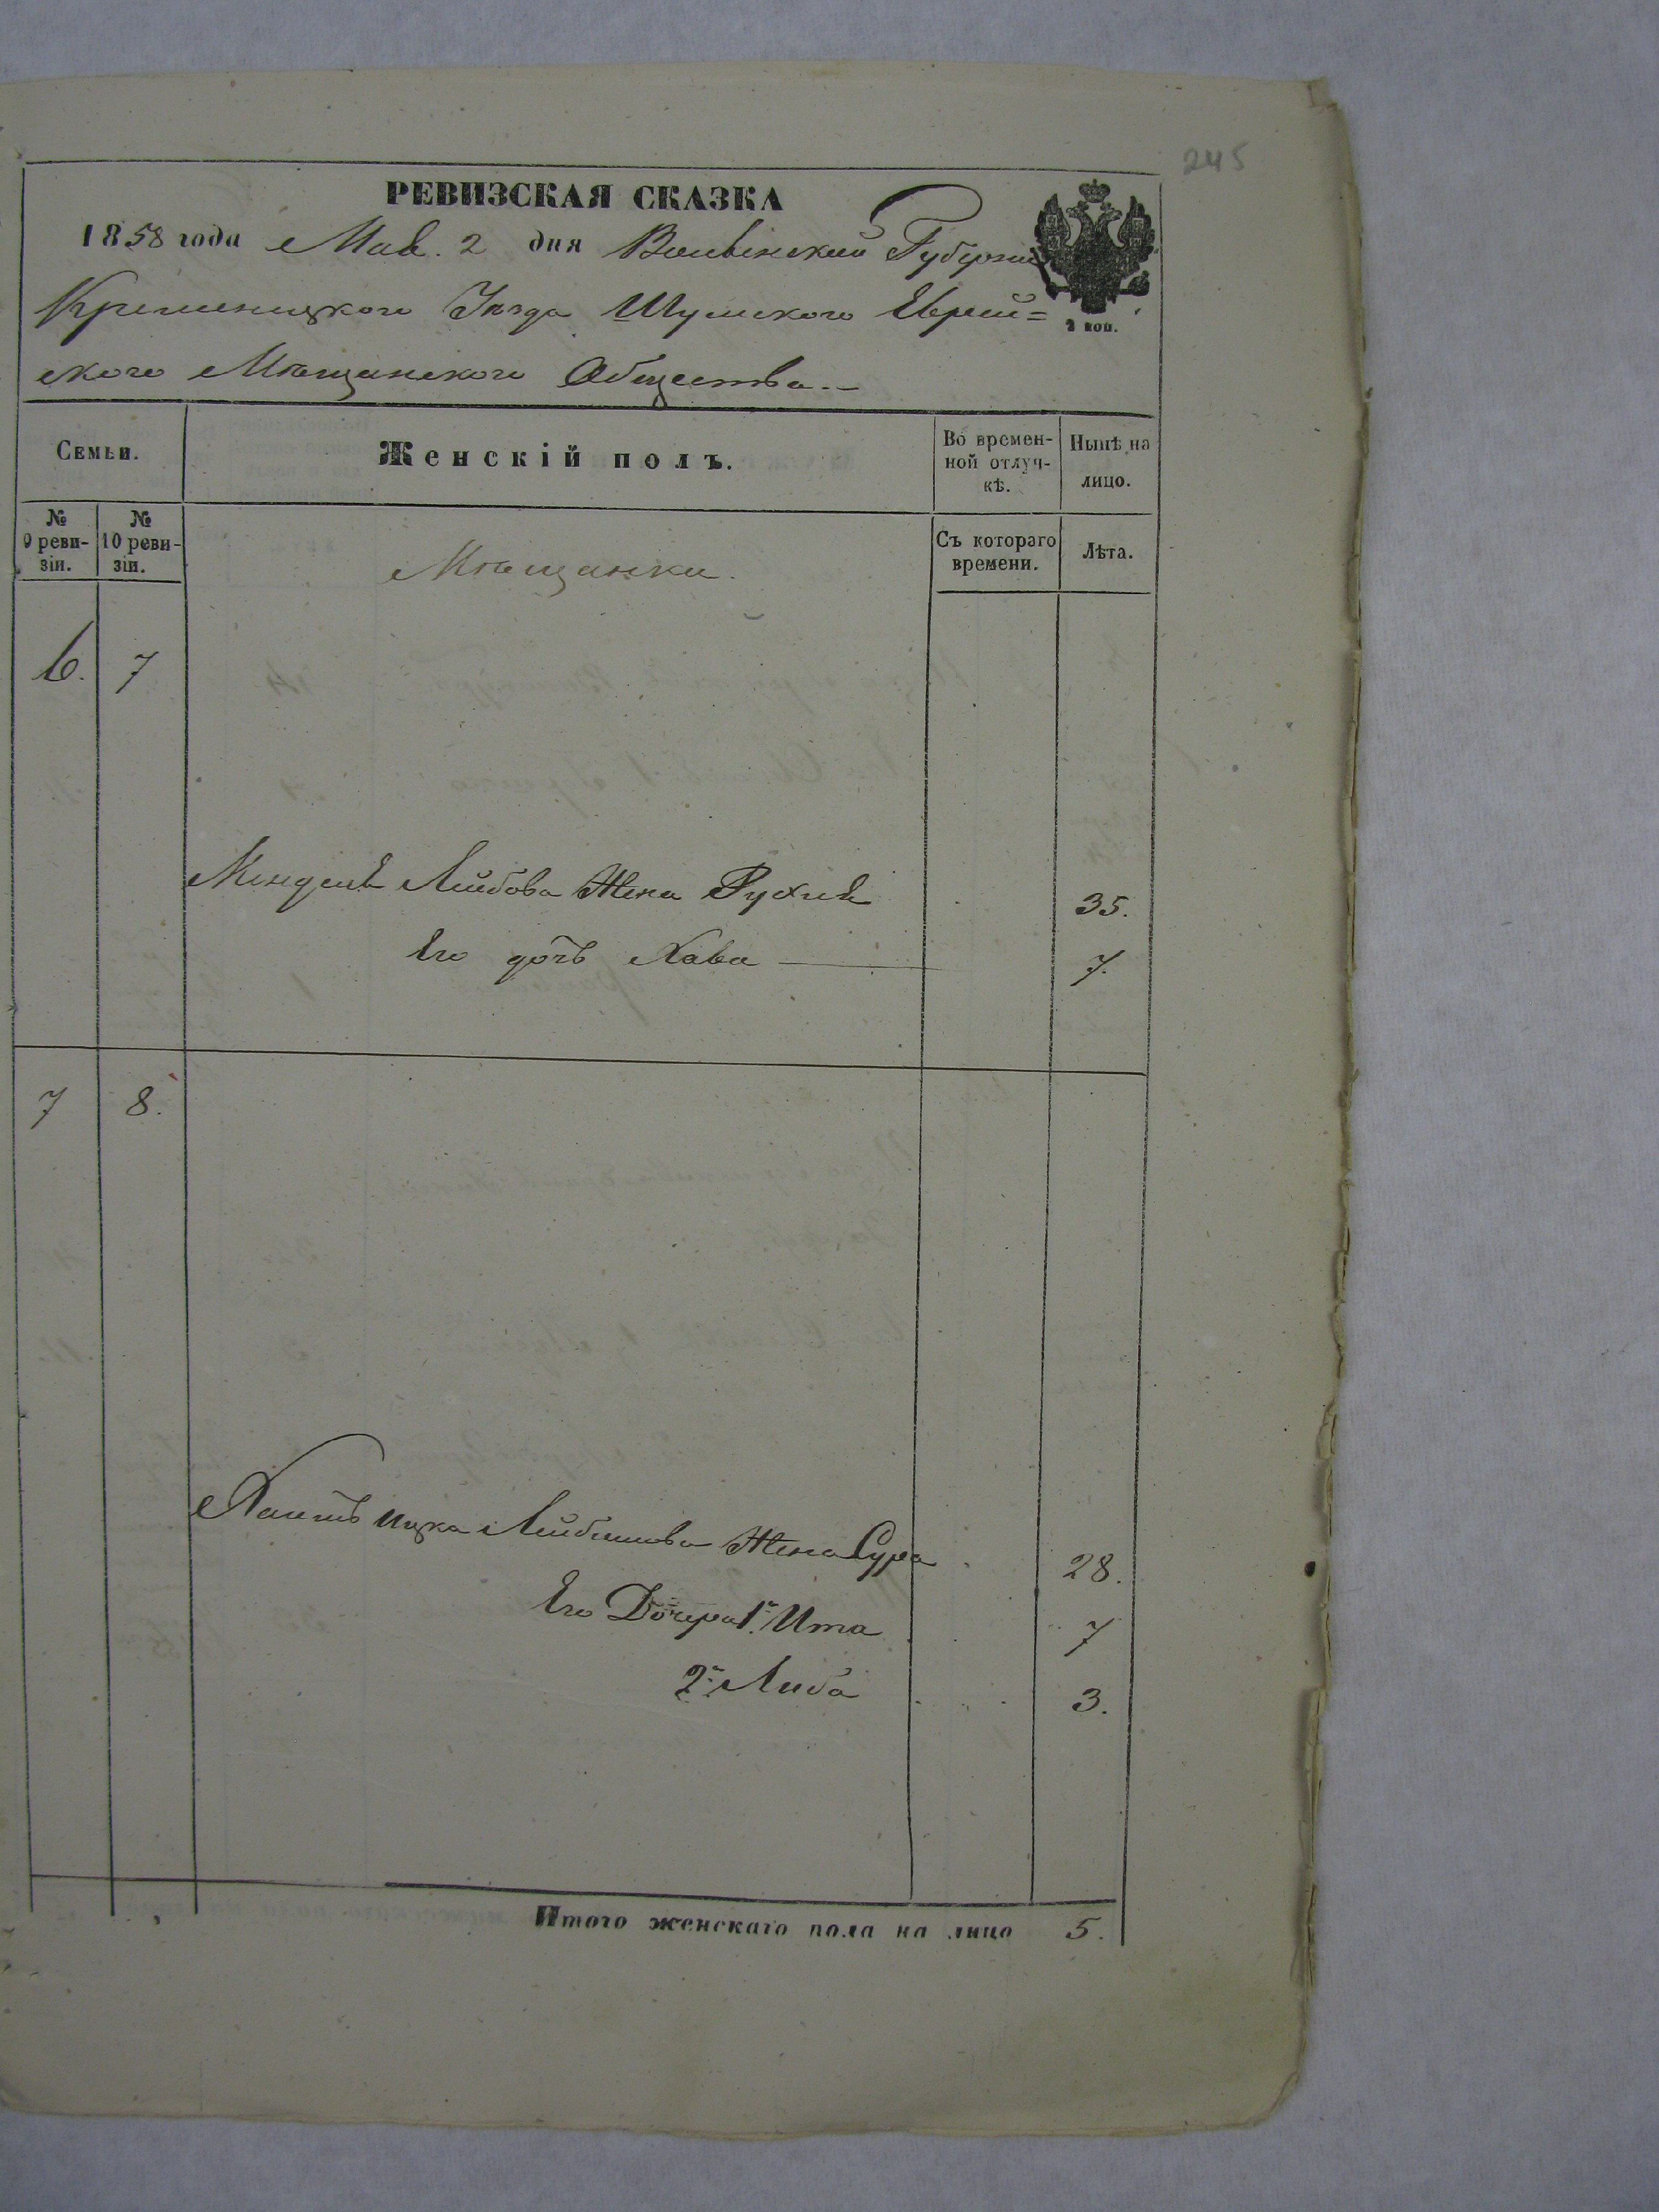 245
РЕВИЗСКАЯ СКАЗКА
1858 года Мая 2 дня Волынской Губернии
Кременецкого Уезда Шумского Еврей=
ского Мѣщанского Общества.
2 коп.
Семьи.
Женскій полъ.
Во времен-
ной отлуч-
кѣ.
Нынѣ на
лицо.
№
9 реви-
зіи.
№
10 реви-
зіи.
Мѣщанки.
Съ котораго
времени.
Лѣта.
6. 7
Менделя Лейбова Жена Рухля 35.
Его дочь Хава 7.
7 8.
Ицка Лейбишова Жена Сура 28.
Его Дочера 1. Ита 7
2. Либа 3.
Итого женскаго пола на лицо 5.